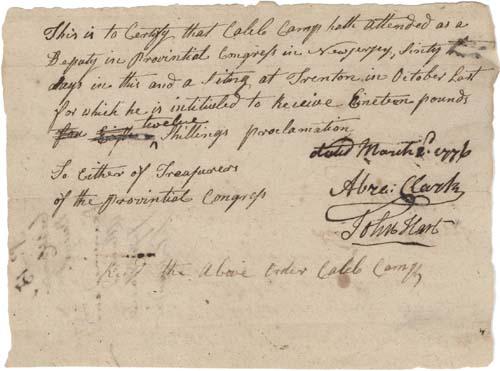 This is to Certify that Caleb Camp hath Attended as a
Deputy in Provintial Congress in Newjersey, Sixty
days in this and a Siting at Trenton in October Last
for which he is intitueled to Receive Nineteen pounds
twelve
Shillings proclamation
dated March 2d. 1776
To Either of Treasurers
of the Provintial Congress
Abra: Clark
John Hart
Recd the Above Order Caleb Camp